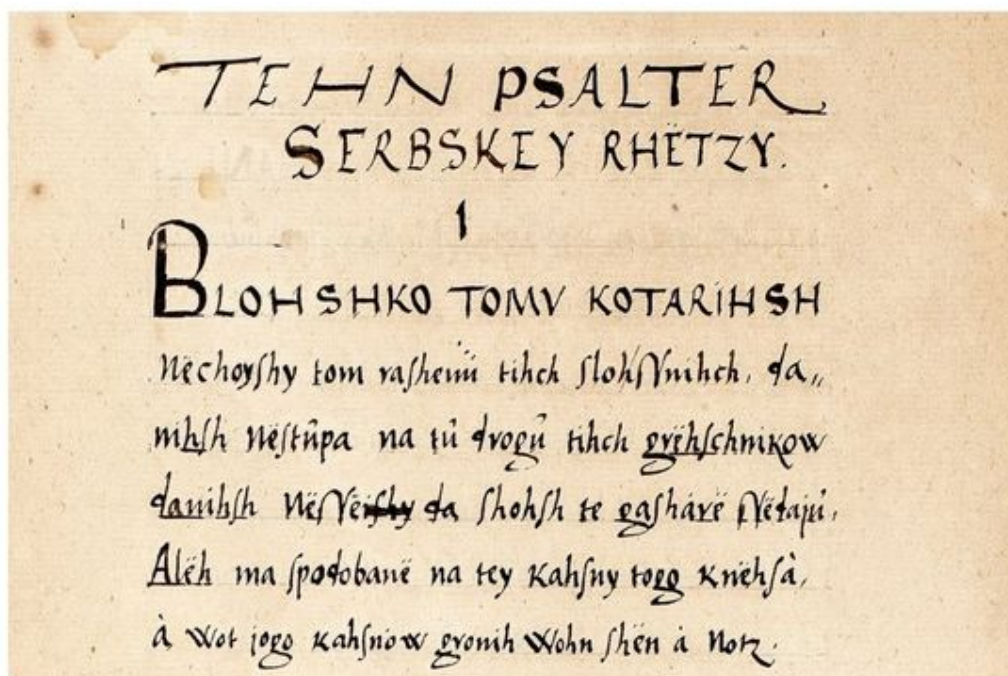 TEHN PSALTER
SERBSKEY RHËTZY.
1
BLOHSHKO TOMV KOTARIHSH
Nëchoyſhy tom raſhenü tihch ſlohſſnihch, da„
nihſh nëſtûpa na tû drogû tihch grëhſchnikow
danihſh da ſhohſh te gaſharë ſſëdajû,
Alëh ma ſpodobanë na tey kahſny togg knëhſà,
à wot jogo kahſnow gronih wohn ſhën à notz.